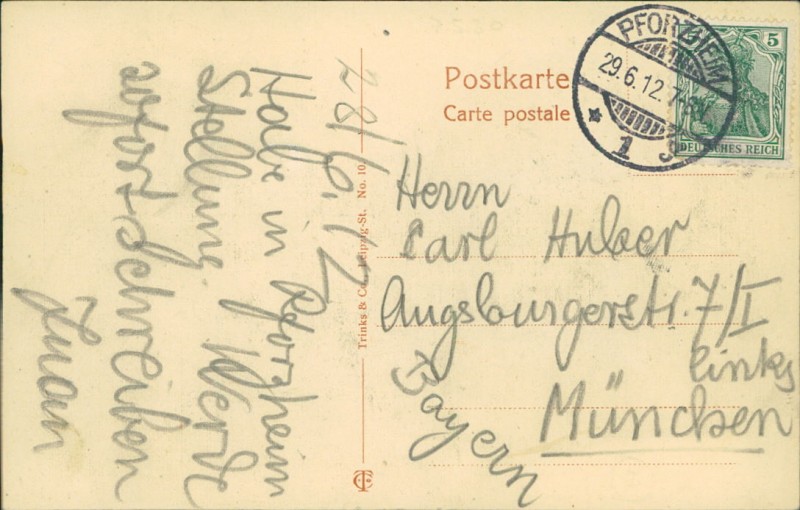 28/6.12
Habe in Pforzheim
Stellung. Werde
sofort schreiben
Juan
Trinks & Co., Leipzig-St. No. 10.
Postkarte
Carte postale
PFORZHEIM
29.6.12. 7-8V.
* 1 g
5
DEUTSCHES REICH
Herrn
Carl Huber
Augsburgerstr. 7/I
links
München
Bayern